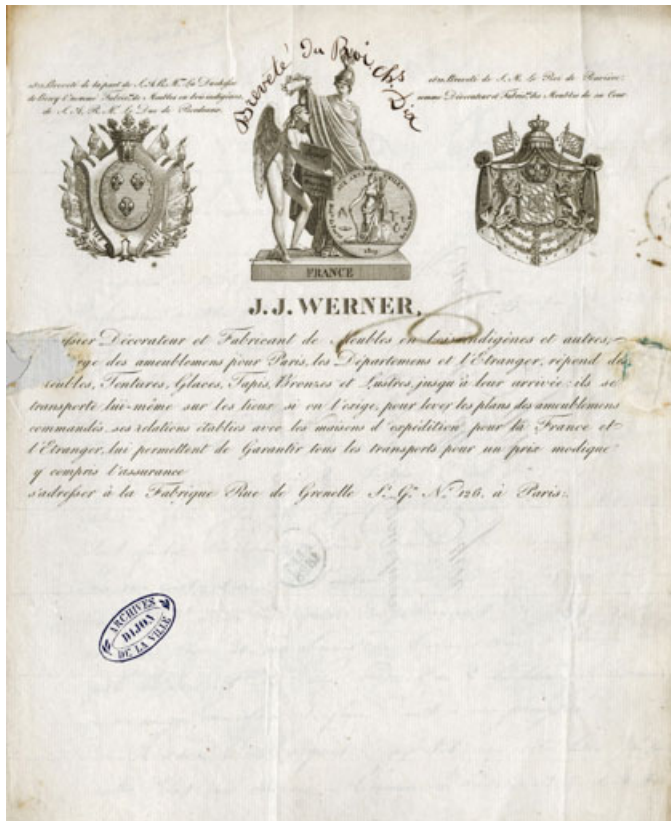 et au Brevetté de la part de S.A.R. Mme La Duchesse
de Berry comme Fabrict. de Meubles en bois indigènes,
de S. A. R. M. le Duc de Bordeaux.
Breveté du Roi chs. Dix
et au Brevetté de S. M. Le Roi de Bavière;
comme Décorateur et Fabrict. des Meubles de sa Cour
AUX ARTS
1819
FRANCE
J. J. WERNER,
Décorateur et Fabricant de Meubles en bois indigènes et autres,
des ameublemens pour Paris, les Départemens et l'Etranger, répond des
Meubles, Tentures, Glaces, Tapis, Bronzes et Lustres jusqu'à leur arrivée; ils se
transporte lui-même sur les lieux si on l'exige, pour lever les plans des ameublemens
commandés, ses relations établies avec les maisons d'expédition pour la France et
l'Etranger, lui permettent de Garantir tous les transports pour un prix modique
y compris l'assurance
s'adresser à la Fabrique Rue de Grenelle St. Gn. No. 126. à Paris.
ARCHIVES
DIJON
DE LA VILLE